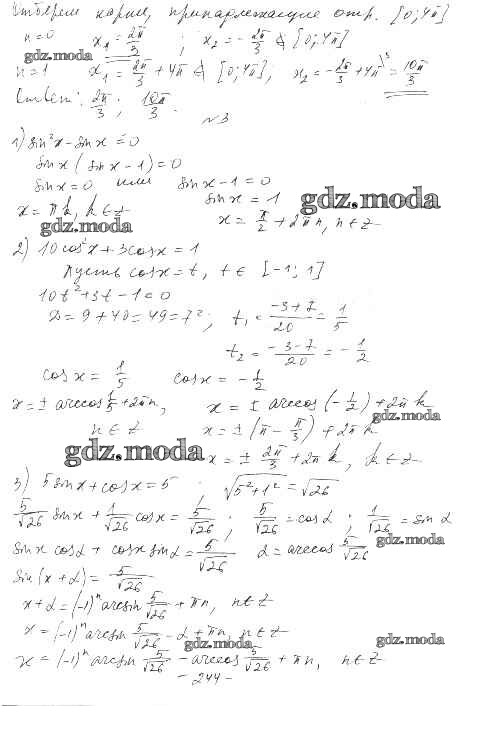 Отберем корни, принадлежащие отр. [0; 4π]
n=0 x₁ = 2π/3 ; x₂ = -2π/3 ∉ [0; 4π]
gdz.moda
n=1 x₁ = 2π/3 + 4π ∉ [0; 4π], x₂ = -2π/3 + 4π = 10π/3
Ответ: 2π/3 ; 10π/3.
№3
1) sin²x - sin x = 0
sin x (sin x - 1) = 0
sin x = 0 или sin x - 1 = 0
sin x = 1
gdz.moda
x = πk, k ∈ z x = π/2 + 2πn, n ∈ z
gdz.moda
2) 10cos²x + 3cos x = 1
Пусть cos x = t, t ∈ [-1; 1]
10t² + 3t - 1 = 0
D = 9 + 40 = 49 = 7²; t₁ = (-3+7)/20 = 1/5
t₂ = (-3-7)/20 = -1/2
cos x = 1/5 cos x = -1/2
x = ± arccos 1/5 + 2πn, x = ± arccos(-1/2) + 2πk
gdz.moda
n ∈ z x = ± (π - π/3) + 2πk
gdz.moda
x = ± 2π/3 + 2πk, k ∈ z
3) 5sin x + cos x = 5 √(5²+1²) = √26
5/√26 sin x + 1/√26 cos x = 5/√26 ; 5/√26 = cos α ; 1/√26 = sin α
gdz.moda
sin x cos α + cos x sin α = 5/√26 α = arccos 5/√26
sin(x + α) = 5/√26
x + α = (-1)ⁿ arcsin 5/√26 + πn, n ∈ z
x = (-1)ⁿ arcsin 5/√26 - α + πn, n ∈ z
gdz.moda gdz.moda
x = (-1)ⁿ arcsin 5/√26 - arccos 5/√26 + πn, n ∈ z
- 244 -